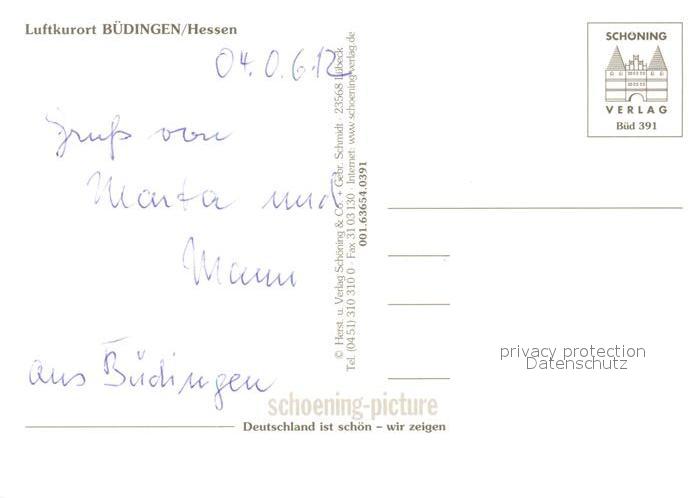 Luftkurort BÜDINGEN/Hessen
04.0.6.12
Gruß von
Marta und
Mann
aus Büdingen
© Herst. u. Verlag Schöning & Co. + Gebr. Schmidt · 23568 Lübeck
Tel. (04 51) 310 310 0 · Fax 31 03 130 · Internet: www.schoening-verlag.de
001.63654.0391
SCHÖNING
VERLAG
Büd 391
privacy protection
Datenschutz
schoening-picture
Deutschland ist schön – wir zeigen